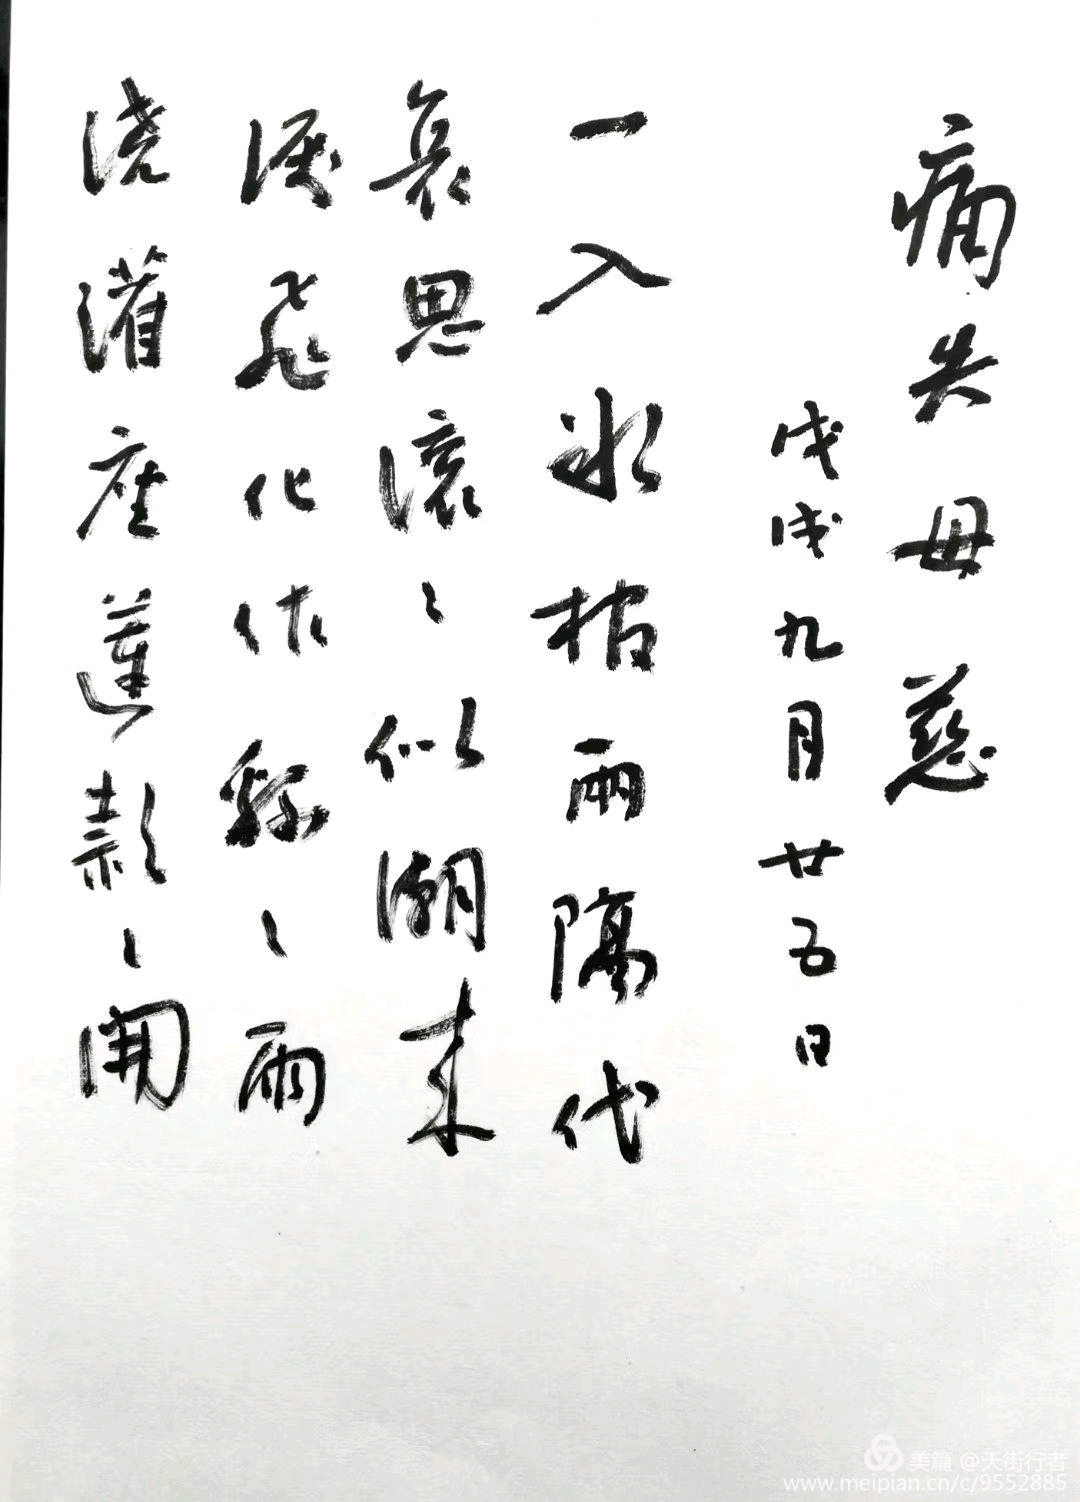 痛失母慈
戊戌九月廿五日
一入冰棺兩隔代
哀思滚〻似潮来
淚飛化作繇〻雨
浇灌座蓮款〻開
美篇 @天街行者
www.meipian.cn/c/9552885